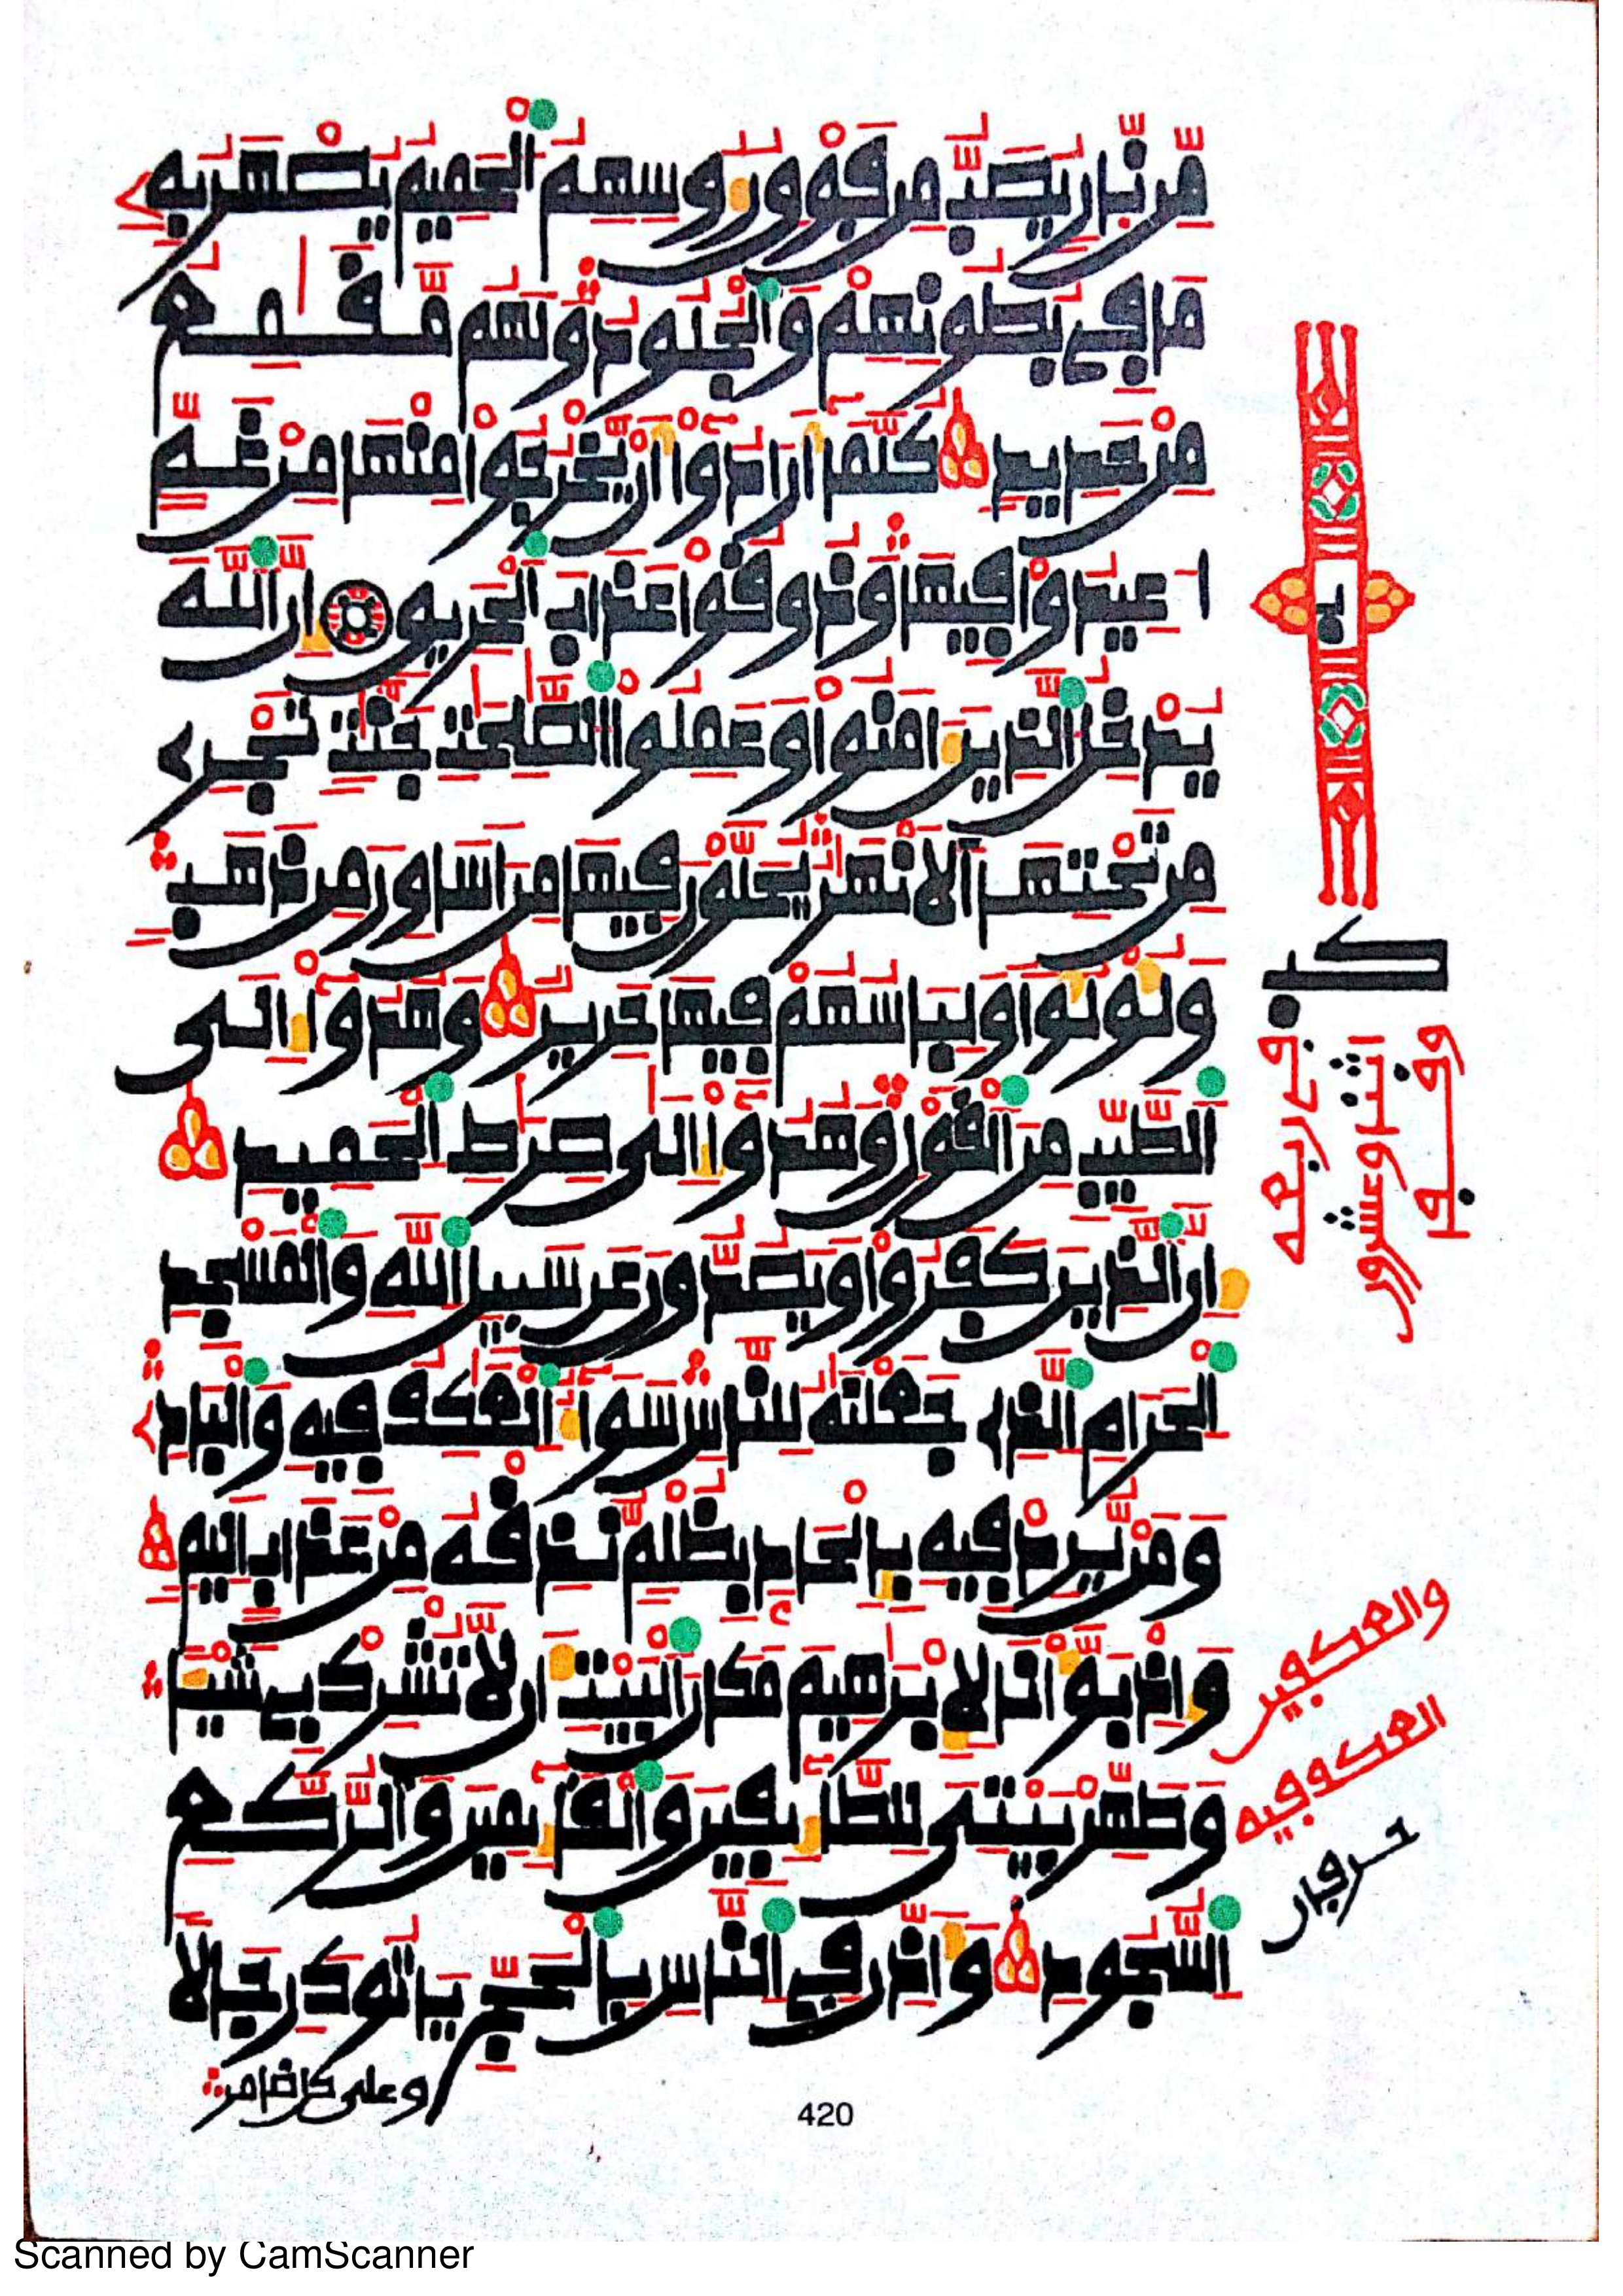 مّن نّار يصبّ من فوق رءوسهم الحميم يصهر به
ما في بطونهم والجلود ولهم مّقـمع
من حديد كلّما أرادوا أن يخرجوا منها من غمّ
اعيدوا فيها وذوقوا عذاب الحريق إنّ اللّه
يدخل الّذين ءامنوا وعملوا الصّلحت جنّت تجري
من تحتها الانهر يحلّون فيها من اساور من ذهب
ولؤلؤا ولباسهم فيها حرير وهدوا إلى
الطّيّب من القول وهدوا إلى صرط الحميد
إنّ الّذين كفروا ويصدّون عن سبيل اللّه والمسجد
الحرام الّذي جعلنه للنّاس سواء العكف فيه والباد
ومن يّرد فيه بإلحاد بظلم نّذقه من عذاب اليم
وإذ بوّأنا لإبرهيم مكان البيت أن لّا تشرك بي شيئا
وطهّر بيتي للطّائفين والقائمين والرّكّع
السّجود وأذّن في النّاس بالحجّ ياتوك رجالا
وعلى كل ضامر
كب
في ربعه
اثنا وعشرون
والعكفين
العكف فيه
حرفان
420
Scanned by CamScanner